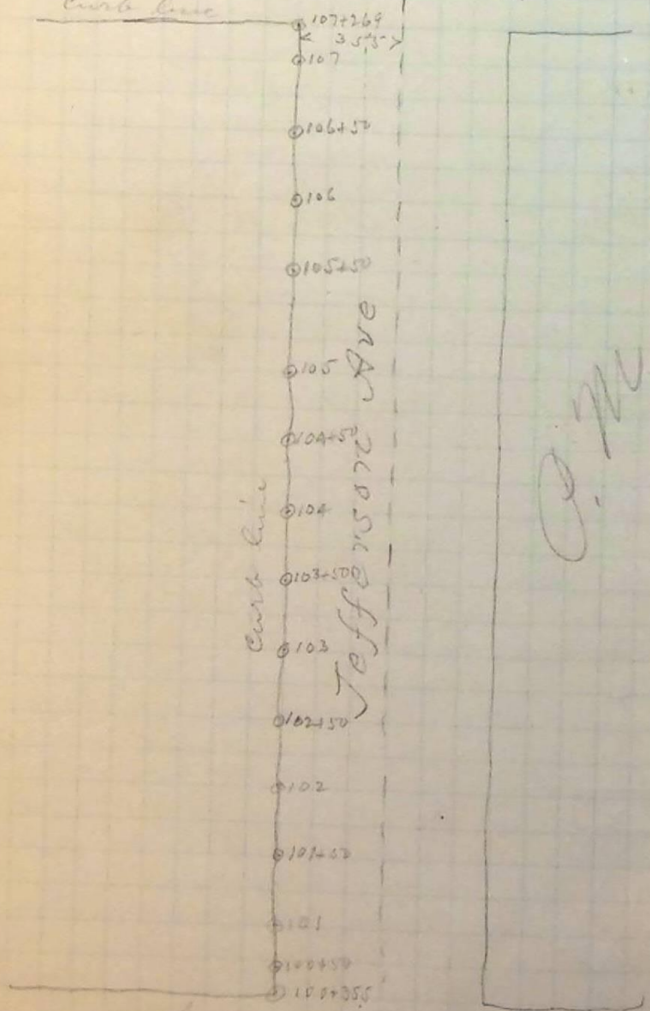 Curb line
107+269
355
107
106+50
106
105+50
105
104+50
104
103+50
103
102+50
102
101+50
101
100+50
100+355
Curb line
Jefferson Ave
C. M